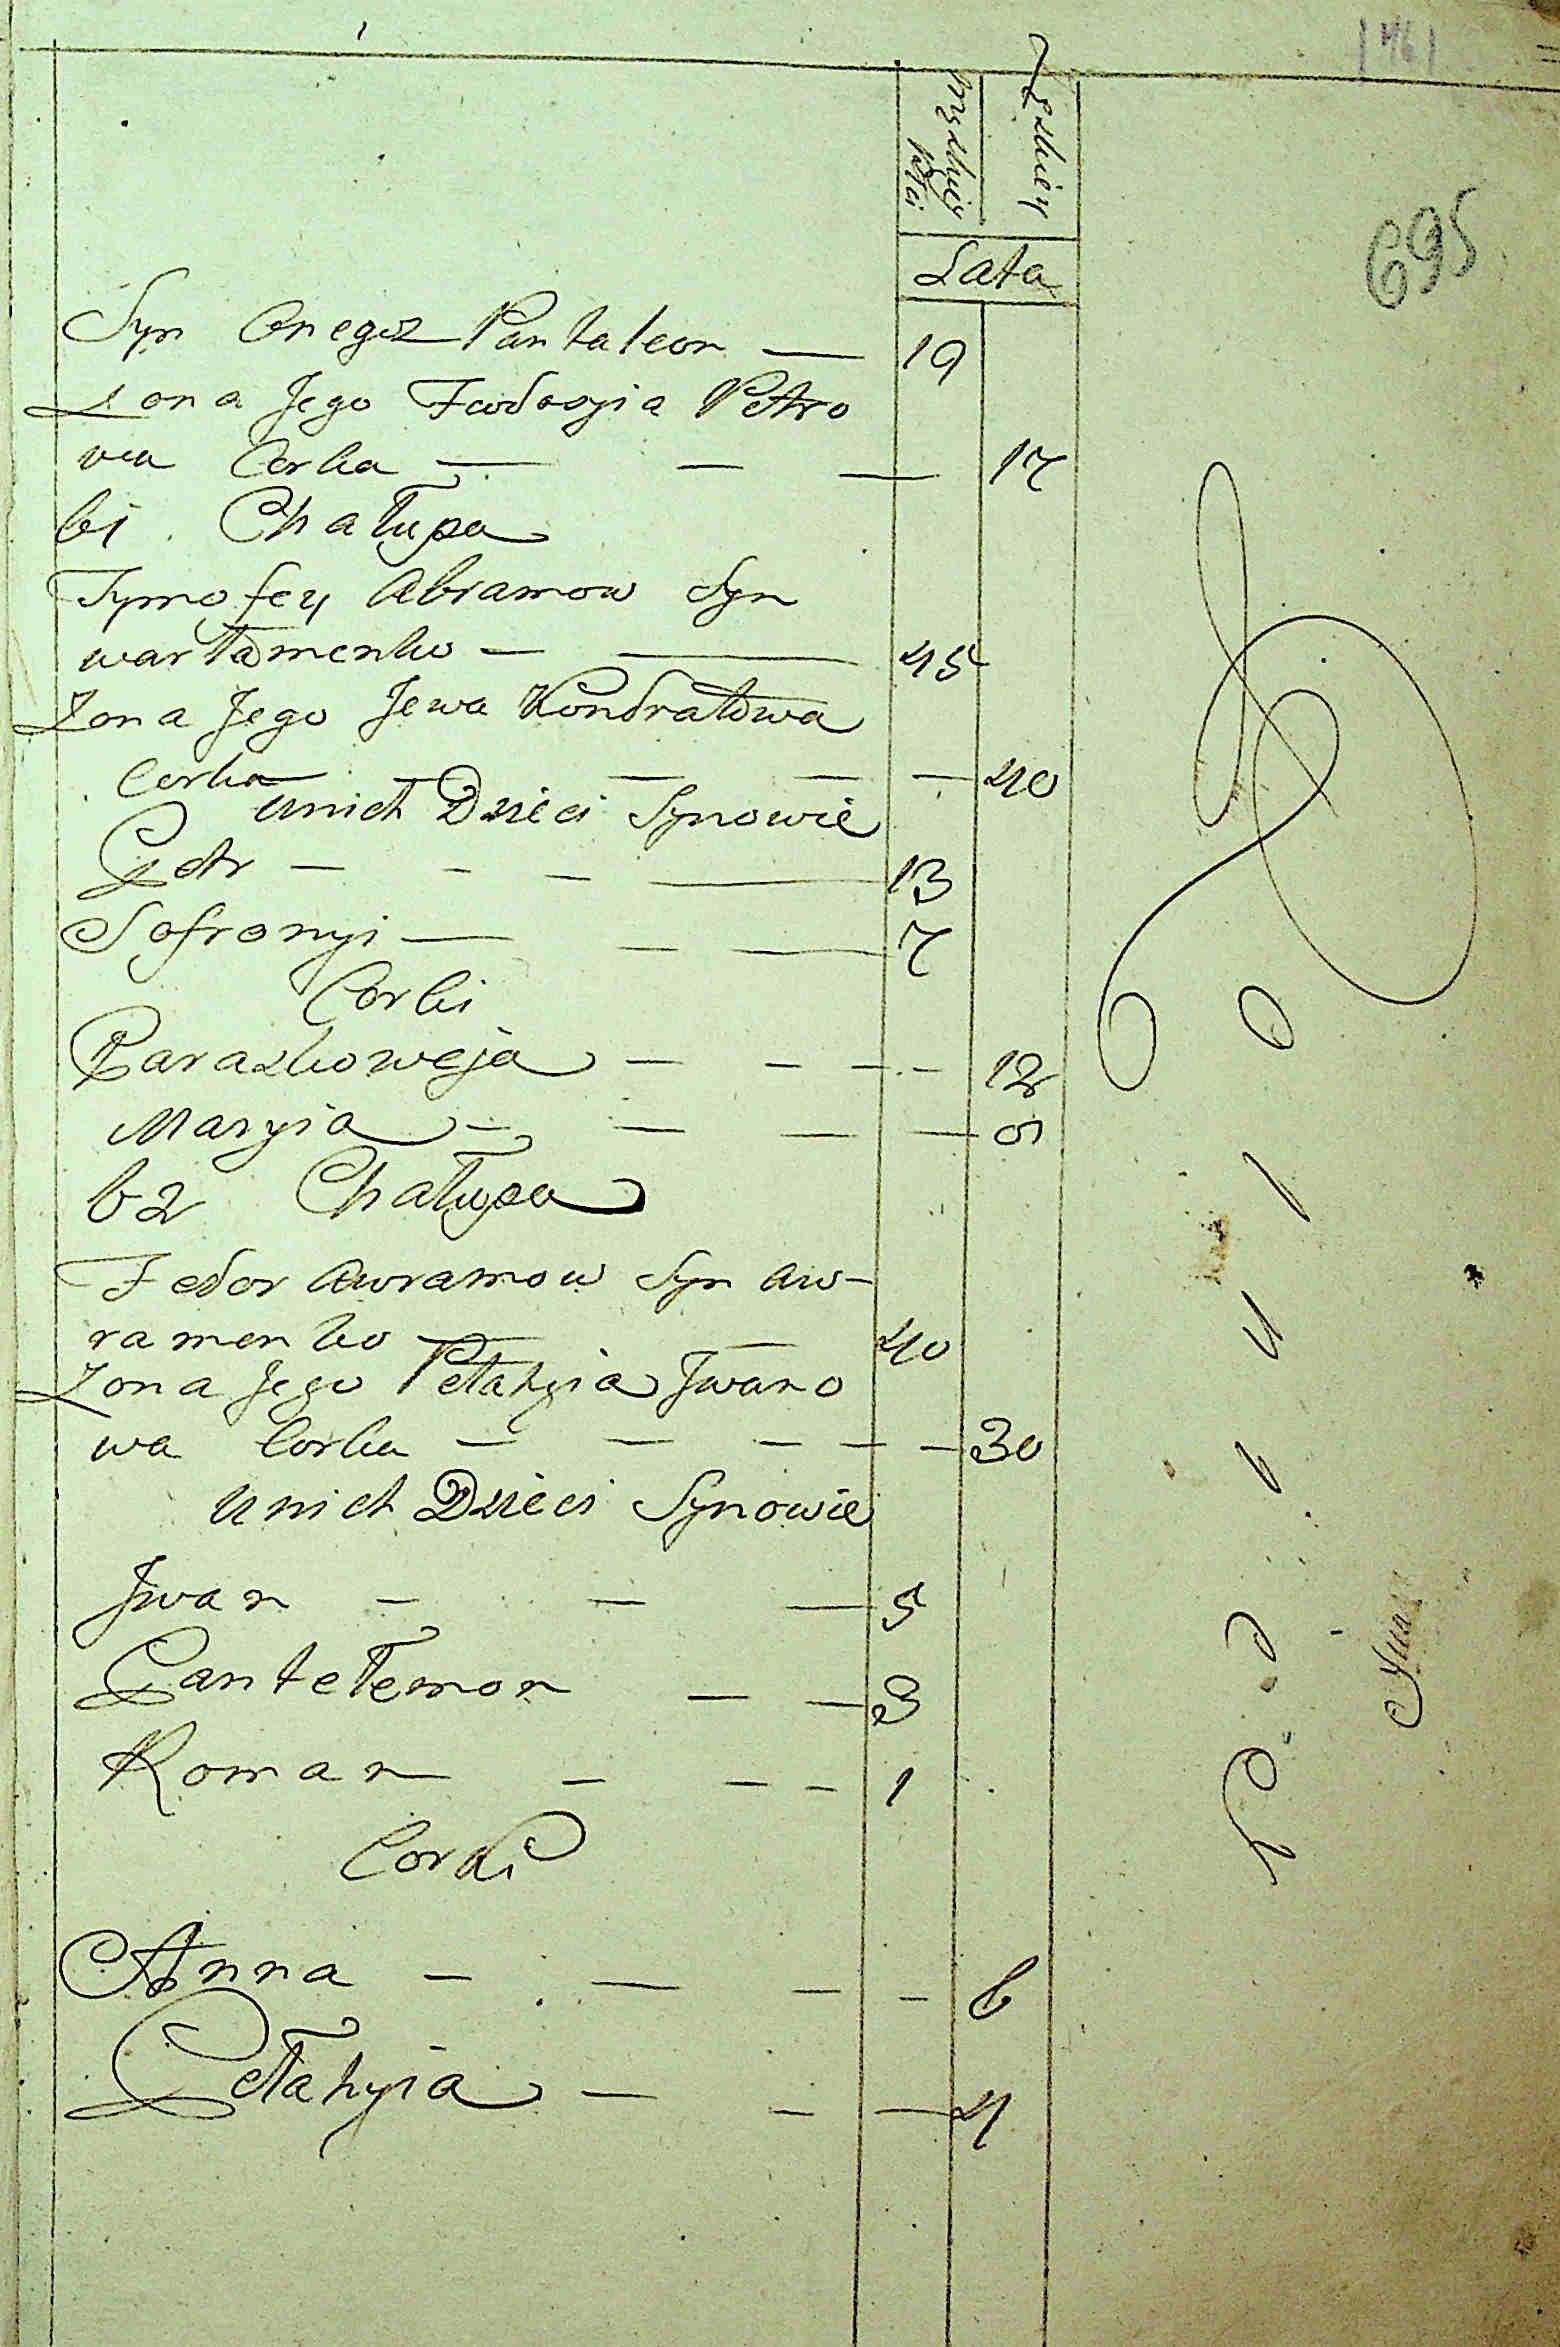 695
Męzkiey płci
Zeskiey
Lata
Syn Onegoz Pantaleon — 19
Zona Jego Fwdosyia Petro
wa Corka — — — 17
61 Chałupa
Tymofey Abramow Syn
warłamenko — — 45
Zona Jego Jewa Kondratowa
Corka — — — — 40
unich Dzieci Synowie
Petr — — — — 13
Sofronyi — — — 7
Corki
Paraskoweja — — — — 12
Maryia — — — — 9
62 Chałupa
Fedor Awramow Syn Aw-
ramenko — — 40
Zona Jego Pełahyia Jwano
wa Corka — — — — — 30
unich Dzieci Synowie
Jwan — — — 5
Pantełemon — — 3
Roman — — — 1
Corki
Anna — — — — 6
Pełahyia — — — 4